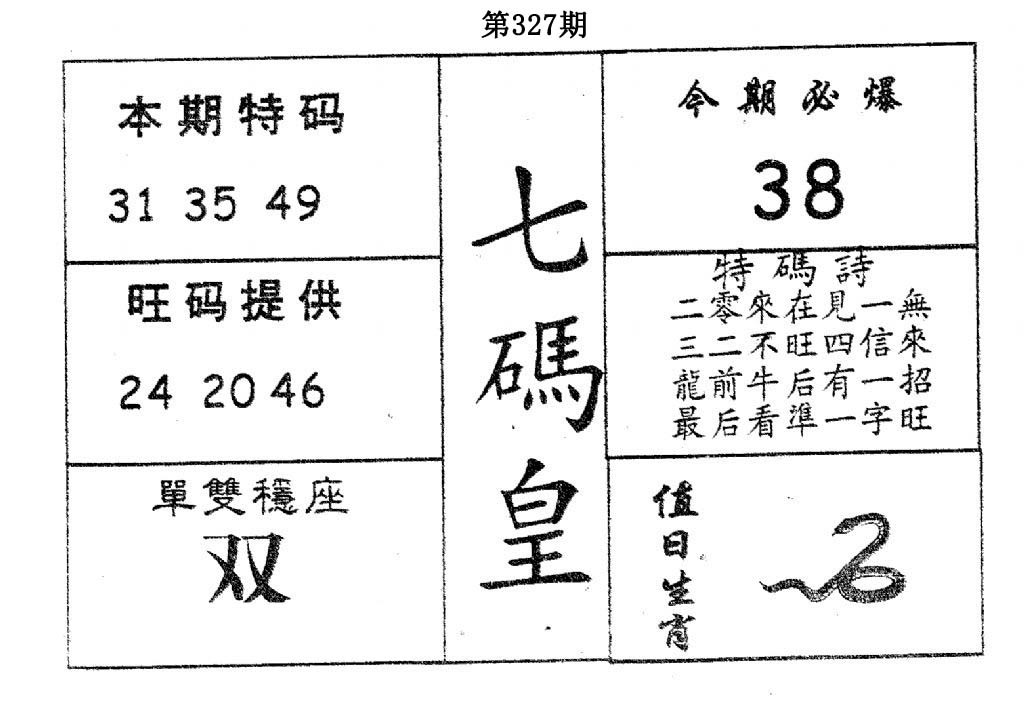 第327期
本期特码
31 35 49
旺码提供
24 20 46
單雙穩座
双
七碼皇
今期必爆
38
特碼詩
二零來在見一無
三二不旺四信來
龍前牛后有一招
最后看準一字旺
值日生肖